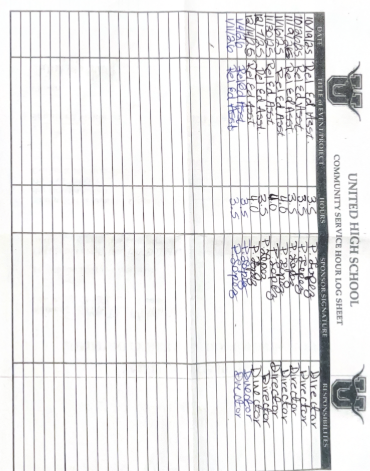 UNITED HIGH SCHOOL
COMMUNITY SERVICE HOUR LOG SHEET
DATE TITLE of EVENT/PROJECT HOURS SPONSOR SIGNATURE RESPONSIBILITES
10/19/25 Rel Ed Assc. 3.5 P. Lopez Director
10/26/25 Rel Ed Asst 3.5 P. Lopez Director
11/2/25 Rel Ed Asst 3.5 P. Lopez Director
11/16/25 Rel Ed Asst 4.0 P. Lopez Director
11/30/25 Rel Ed Asst 4.0 P. Lopez Director
12/7/25 Rel Ed Asst 3.5 P. Lopez Director
12/14/25 Rel Ed Asst 4.0 P. Lopez Director
1/4/26 Rel Ed Asst 3.5 P. Lopez Director
1/11/26 Rel Ed Asst 3.5 P. Lopez Director